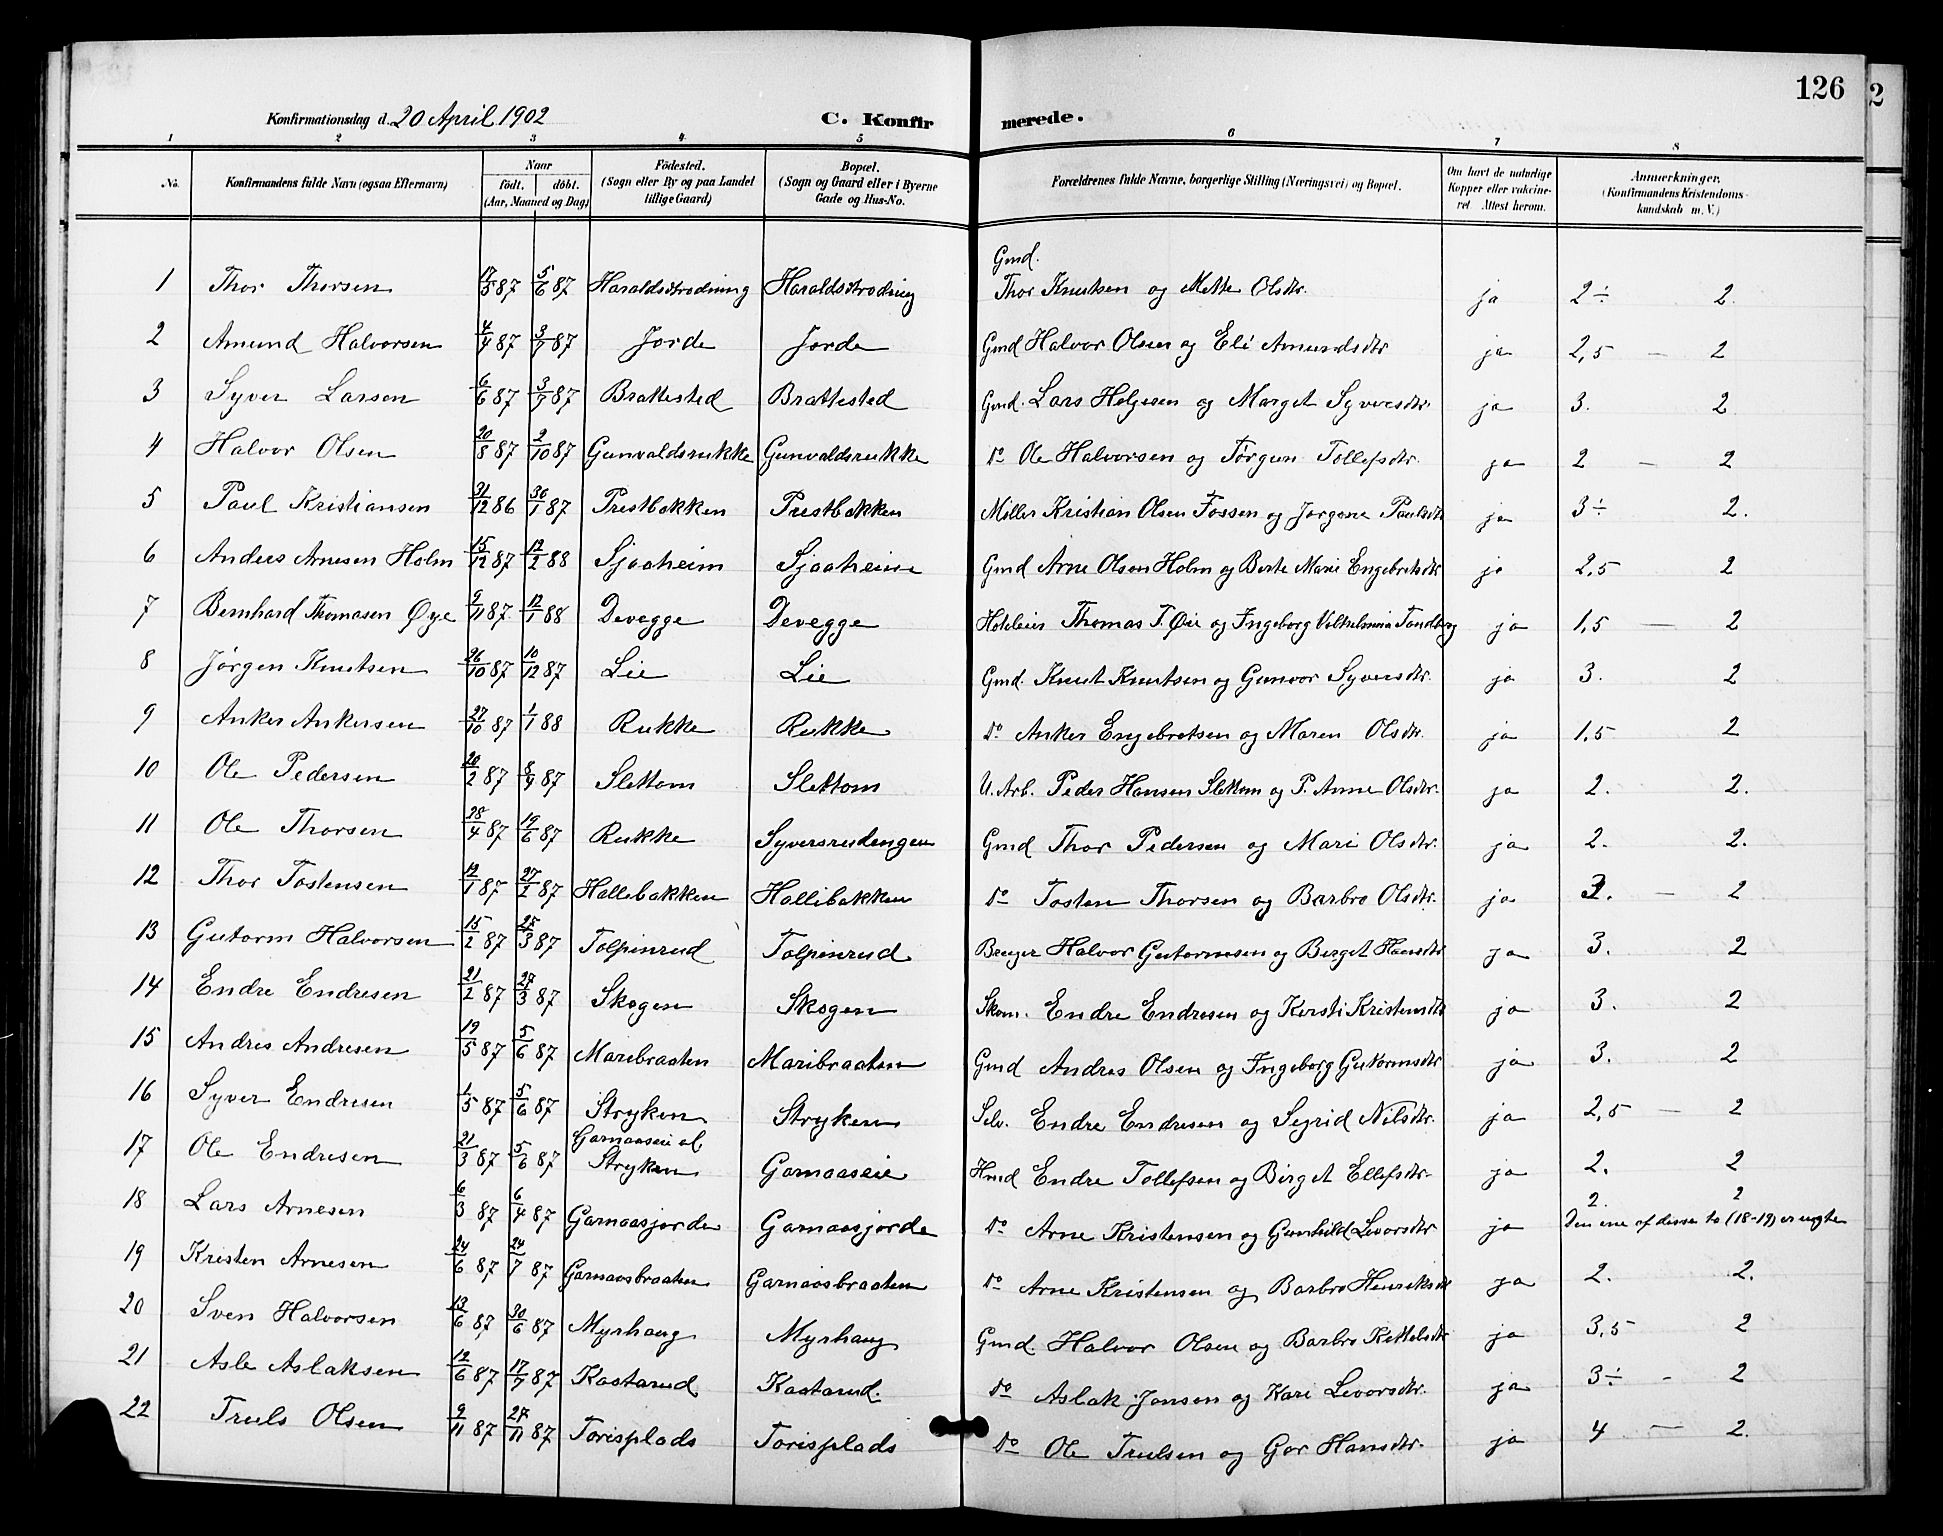 126
2
Konfirmationsdag d. 20 April 1902 C. Konfirmerede.
1 2 3 4 5 6 7 8
No. Konfirmandens fulde Navn (ogsaa Efternavn) Naar født. døbt. (Aar, Maaned og Dag) Födested. (Sogn eller By og paa Landet tillige Gaard) Bopæl. (Sogn og Gaard eller i Byerne Gade og Hus-No. Forældrenes fulde Navne, borgerlige Stilling (Næringsvei) og Bopæl. Om havt de naturlige Kopper eller vakcineret Attest herom. Anmærkninger, (Konfirmandens Kristendomskundskab m. V.)
1 Thor Thorsen 17/5 87 5/6 87 Haraldsetrodning Haraldsetrodning Gmd. Thor Knutsen og Mette Olsdtr. ja 2÷ 2.
2 Amund Halvorsen 4/4 87 3/7 87 Jorde Jorde Gmd Halvor Olsen og Eli Amundsdtr ja 2,5 — 2
3 Syver Larsen 6/6 87 3/7 87 Brattested Brattested Gmd. Lars Helgesen og Marget Syversdtr. ja 3. 2
4 Halvor Olsen 20/8 87 2/10 87 Gunvaldsrukke Gunvaldsrukke do Ole Halvorsen og Jørgun Tollefsdtr. ja 2 — 2
5 Paul Kristiansen 31/12 86 30/1 87 Prestbakken Prestbakken Miller Kristian Olsen Fossen og Jørgine Paulsdtr ja 3÷ 2.
6 Andres Arnesen Holm 15/12 87 12/2 88 Sjaaheim Sjaaheim Gmd Arne Olsen Holm og Berte Marie Engebretsdtr ja 2,5 2
7 Bernhard Thomasen Øye 9/11 87. 12/1 88 Devegge Devegge Hoteleier Thomas T. Øie og Ingeborg Vilhelmine Tandberg ja 1,5 — 2
8 Jørgen Knutsen 26/10 87 10/12 87 Lie Lie Gmd. Knut Knutsen og Gunvor Syversdtr. ja 3. 2
9 Anker Ankersen 27/10 87 1/1 88 Rukke Rukke do Anker Engebretsen og Maren Olsdtr. ja 1,5 2
10 Ole Pedersen 20/2 87 8/9 87 Slettom Slettom U. Arb. Peder Hansen Slettom og P. Anne Olsdtr. ja 2. 2.
11 Ole Thorsen 28/4 87 19/6 87 Rukke Syversrudengen Gmd Thor Pedersen og Mari Olsdtr. ja 2. 2.
12 Thor Tostensen 12/1 87 27/2 87 Hallibakken Hallibakken do Tosten Thorsen og Barbro Olsdtr. ja 3. — 2
13 Gutorm Halvorsen 15/2 87 25/3 87 Tolpinrud Tolpinrud Halvor Gutormsen og Birget Hansdtr ja 3. 2
14 Endre Endresen 21/2 87 27/3 87 Skogen Skogen Skom. Endre Endresen og Kersti Kristensdtr ja 3. 2
15 Andris Andresen 19/5 87 5/6 87 Maribraaten Maribraaten Gmd Andres Olsen og Ingeborg Guttormsdtr ja 3. 2
16 Syver Endresen 1/5 87 5/6 87 Stryken Stryken Selv. Endre Endresen og Sigrid Nilsdtr. ja 2,5 — 2
17 Ole Endresen 21/3 87 5/6 87 Garnaaseie al Stryken Garnaaseie Hmd Endre Tollefsen og Birget Ellefsdtr. ja 2. 2
18 Lars Arnesen 6/3 87 6/4 87 Garnaasjorde Garnaasjorde do Arne Kristensen og Gunhild Levorsdtr ja 2. 2 Den ene af disse to (18-19) er uegte
19 Kristen Arnesen 24/6 87 24/7 87 Garnaasbraaten Garnaasbraaten do Arne Kristensen og Barbro Henriksdt ja 2. 2.
20 Sven Halvorsen 13/6 87 30/6 87 Myrhaug Myrhaug Gmd. Halvor Olsen og Barbro Kittelsdtr ja 3,5 2
21 Asle Aslaksen 12/6 87 17/7 87 Kastarud Kastarud. do Aslak Jonsen og Kari Levorsdtr. ja 3÷ - 2
22 Truls Olsen 9/11 87 27/11 87 Torisplads Torisplads do Ole Trulsen og Gor Hansdtr. ja 4 — 2.